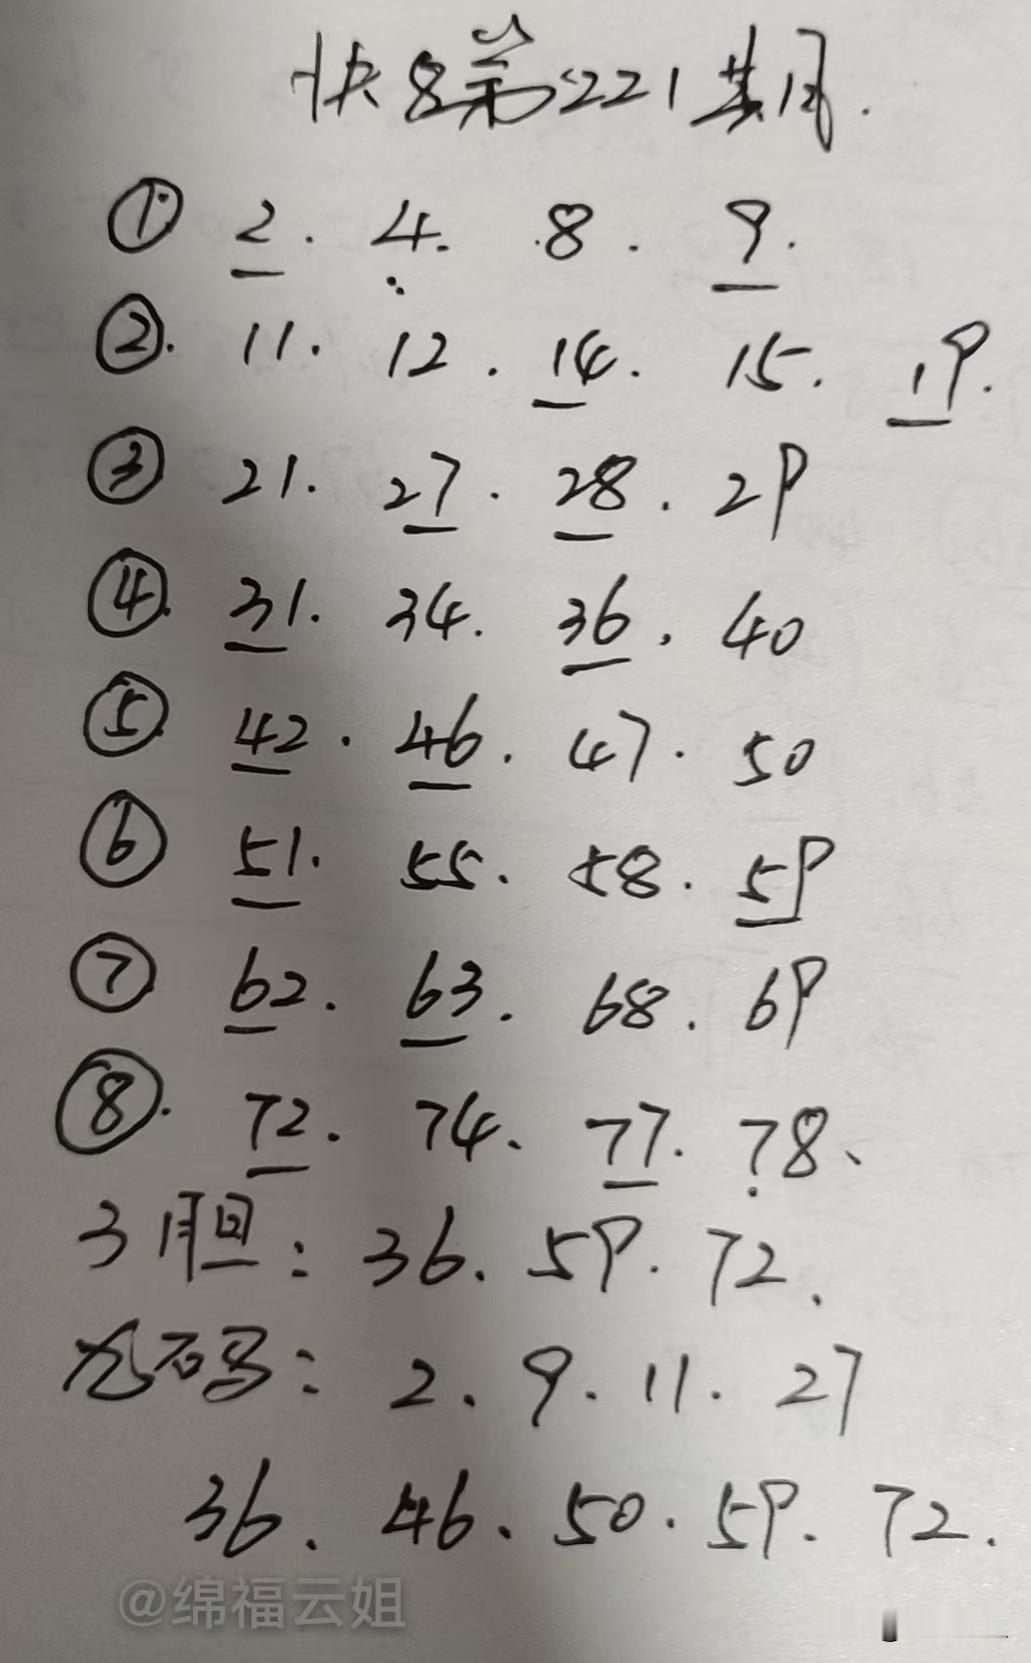 快8第221期
① 2. 4. 8. 9.
②. 11. 12. 14. 15. 19.
③ 21. 27. 28. 29
④. 31. 34. 36. 40
⑤ 42. 46. 47. 50
⑥ 51. 55. 58. 59
⑦ 62. 63. 68. 69
⑧. 72. 74、 77. 78、
3胆: 36. 59. 72.
码: 2. 9. 11. 27
36. 46. 50. 59. 72.
@绵福云姐